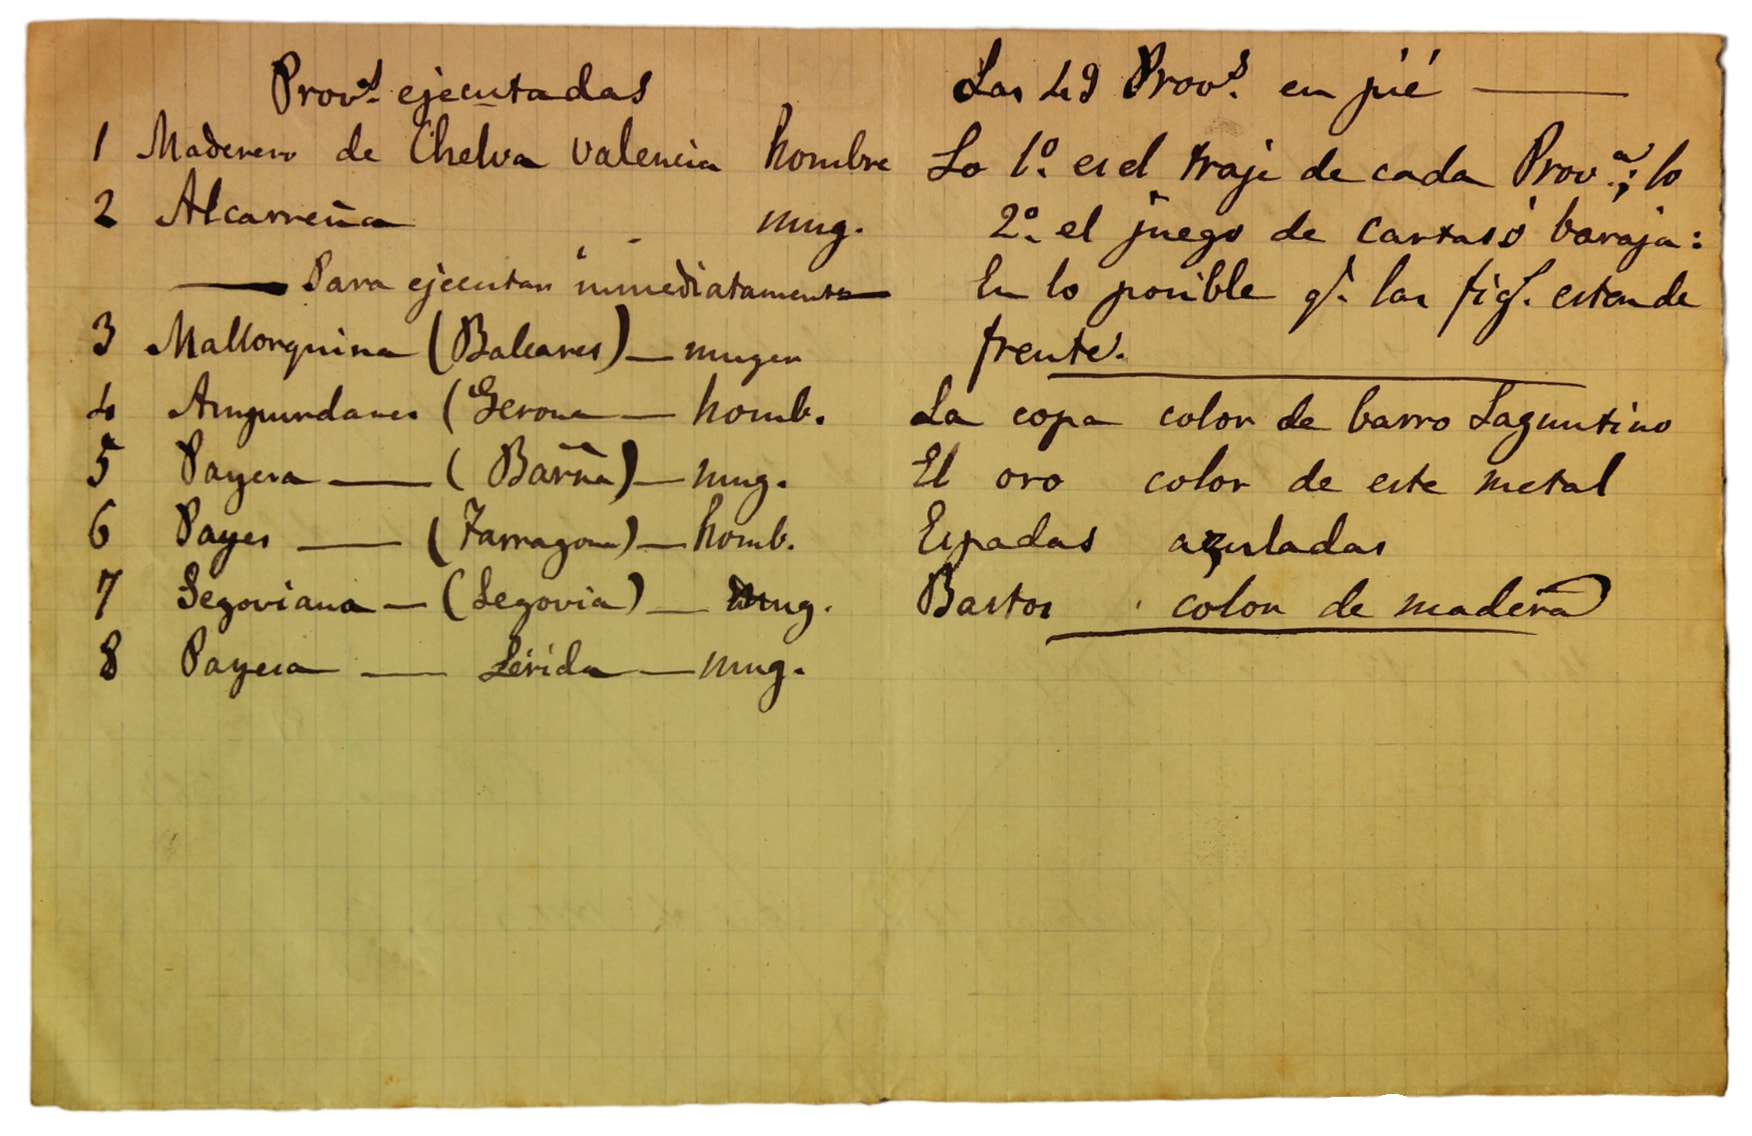 Prov.s ejecutadas
1 Maderero de Chelva Valencia hombre
2 Alcarreña mug.
Para ejecutar inmediatamente
3 Mallorquina (Baleares) — muger
4 Ampurdanes (Gerona — homb.
5 Payesa — (Barña) — mug.
6 Payes — (Tarragona) — homb.
7 Segoviana — (Segovia) — mug.
8 Payesa — Lérida — mug.
Las 49 Prov.s en pié —
Lo 1º es el traje de cada Prov.a; lo
2º el juego de cartas ó baraja:
En lo posible q.e las fig.s esten de
frente.
La copa color de barro Saguntino
El oro color de este metal
Espadas azuladas
Bastos color de madera